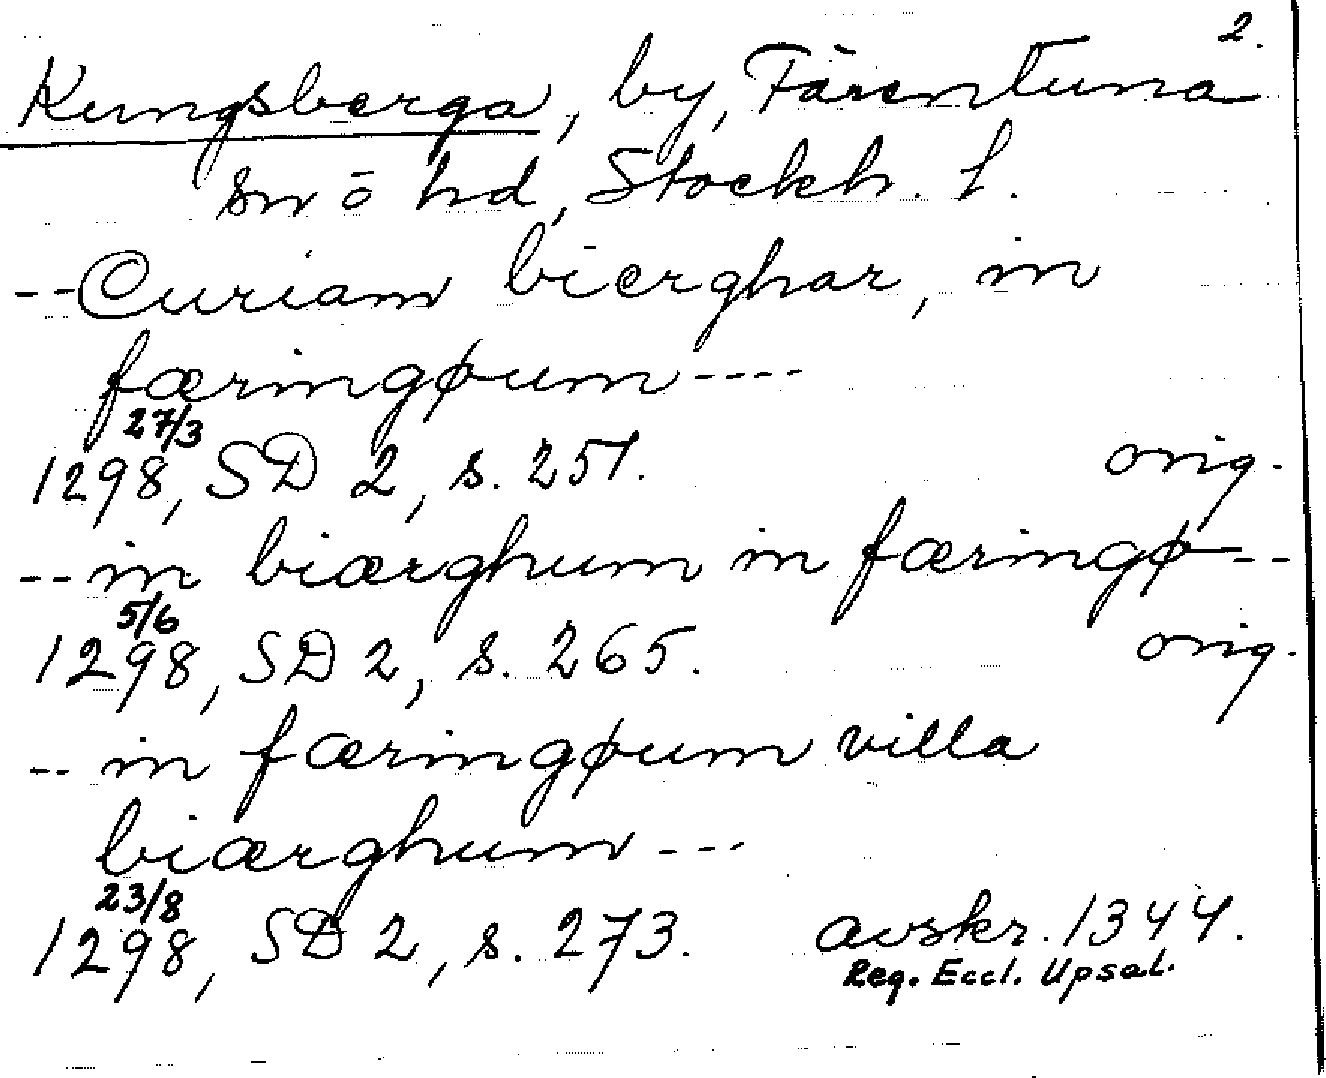 2.
Kungsberga, by, Färentuna
sn o hd, Stockh. l.
-- Curiam bierghar, in
færingøum ----
27/3
1298, SD 2, s. 251. orig.
-- in biærghum in færingø --
5/6
1298, SD 2, s. 265. orig.
-- in færingøum villa
biærghum ---
23/8
1298, SD 2, s. 273. avskr. 1344.
Reg. Eccl. Upsal.